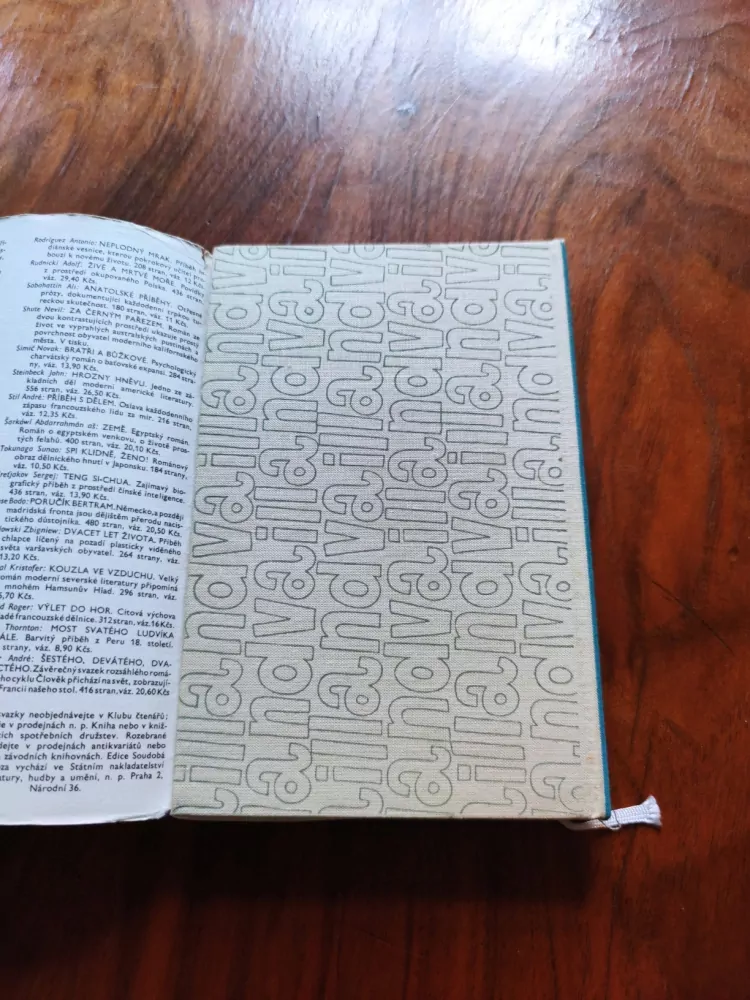 Rodriguez Antonio: NEPLODNÝ MRAK. Příběh in-
diánské vesnice, kterou pokrokový učitel pro-
bouzí k novému životu. 208 stran, váz. 12 Kčs.
Rudnicki Adolf: ŽIVÉ A MRTVÉ MOŘE. Povídky
z prostředí okupovaného Polska. 436 stran,
váz. 29,40 Kčs.
Sabahattin Ali: ANATOLSKÉ PŘÍBĚHY.
prózy, dokumentující každodenní trpkou tu-
reckou skutečnost. 180 stran, váz. 11 Kčs.
Shute Nevil: ZA ČERNÝM PAŘEZEM. Román ze
dvou kontrastujících prostředí ukazuje prostý
život ve vyprahlých australských pustinách a
povrchnost obyvatel moderního kalifornského
města. V tisku.
Simić Novak: BRATŘI A BŮŽKOVÉ. Psychologický
charvátský román o baťovské expansi. 284 stra-
ny, váz. 13,90 Kčs.
Steinbeck John: HROZNY HNĚVU. Jedno ze zá-
kladních děl moderní americké literatury.
556 stran, váz. 26,50 Kčs.
Stil André: PŘÍBĚH S DĚLEM. Oslava každodenního
zápasu francouzského lidu za mír. 216 stran,
váz. 12,35 Kčs.
Šarkáwí Abdarrahmán aš: ZEMĚ. Egyptský román.
Román o egyptském venkovu, o životě pros-
tých felahů. 400 stran, váz. 20,10 Kčs.
Tokunaga Sunao: SPI KLIDNĚ, ŽENO! Románový
obraz dělnického hnutí v Japonsku. 184 strany,
váz. 10,50 Kčs.
retjakov Sergej: TENG SI-CHUA. Zajímavý bio-
grafický příběh z prostředí čínské inteligence.
436 stran, váz. 13,90 Kčs.
se Bodo: PORUČÍK BERTRAM. Německo, a později
madridská fronta jsou dějištěm přerodu nacis-
tického důstojníka. 480 stran, váz. 20,50 Kčs.
lowski Zbigniew: DVACET LET ŽIVOTA. Příběh
chlapce líčený na pozadí plasticky viděného
světa varšavských obyvatel. 264 strany, váz.
13,20 Kčs.
al Kristofer: KOUZLA VE VZDUCHU. Velký
román moderní severské literatury připomíná
mnohém Hamsunův Hlad. 296 stran, váz.
5,70 Kčs.
d Roger: VÝLET DO HOR. Citová výchova
adé francouzské dělnice. 312 stran, váz. 16 Kčs.
Thornton: MOST SVATÉHO LUDVÍKA
ÁLE. Barvitý příběh z Peru 18. století.
strany, váz. 8,90 Kčs.
r André: ŠESTÉHO, DEVÁTÉHO, DVA-
CTÉHO. Závěrečný svazek rozsáhlého romá-
ho cyklu Člověk přichází na svět, zobrazují-
Francii našeho stol. 416 stran, váz. 20,60 Kčs
vazky neobjednávejte v Klubu čtenářů;
e v prodejnách n. p. Kniha nebo v kniž-
cích spotřebních družstev. Rozebrané
dejte v prodejnách antikvariátů nebo
závodních knihovnách. Edice Soudobá
za vychází ve Státním nakladatelství
atury, hudby a umění, n. p. Praha 2,
Národní 36.